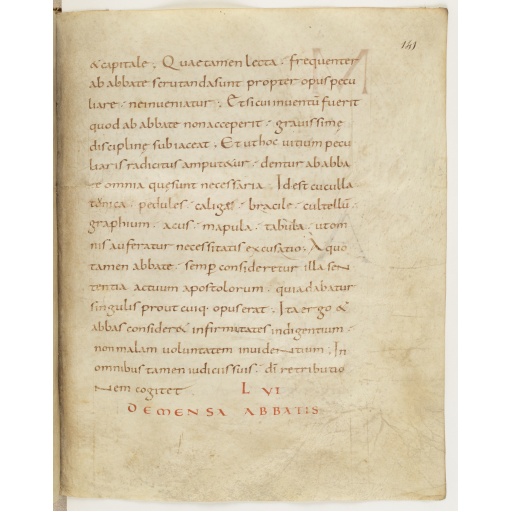 141
& capitale ; Quae tamen lecta · frequenter
ab abbate scrutanda sunt propter opus pecu
liare · ne inveniatur ; Et si cui inventũ fuerit
quod ab abbate non acceperit · gravissime
discipline subiaceat ; Et ut hoc vitium pecu
liaris radicitus amput&ur · dentur ab abba
te omnia que sunt necessaria ; Id est cuculla
tunica · pedules · caligas · bracile · cultellũ ·
graphium · acus · mapula · tabula · ut om
nis auferatur necessitatis excusatio ; A quo
tamen abbate · semp consideretur illa sen
tentia actuum apostolorum · quia dabatur
singulis prout cuiq; opus erat ; Ita ergo &
abbas consider& infirmitates indigentium ·
non malam voluntatem invidentium ; In
omnibus tamen iudiciis suis · dī retributio
nem cogitet LVI
DE MENSA ABBATIS